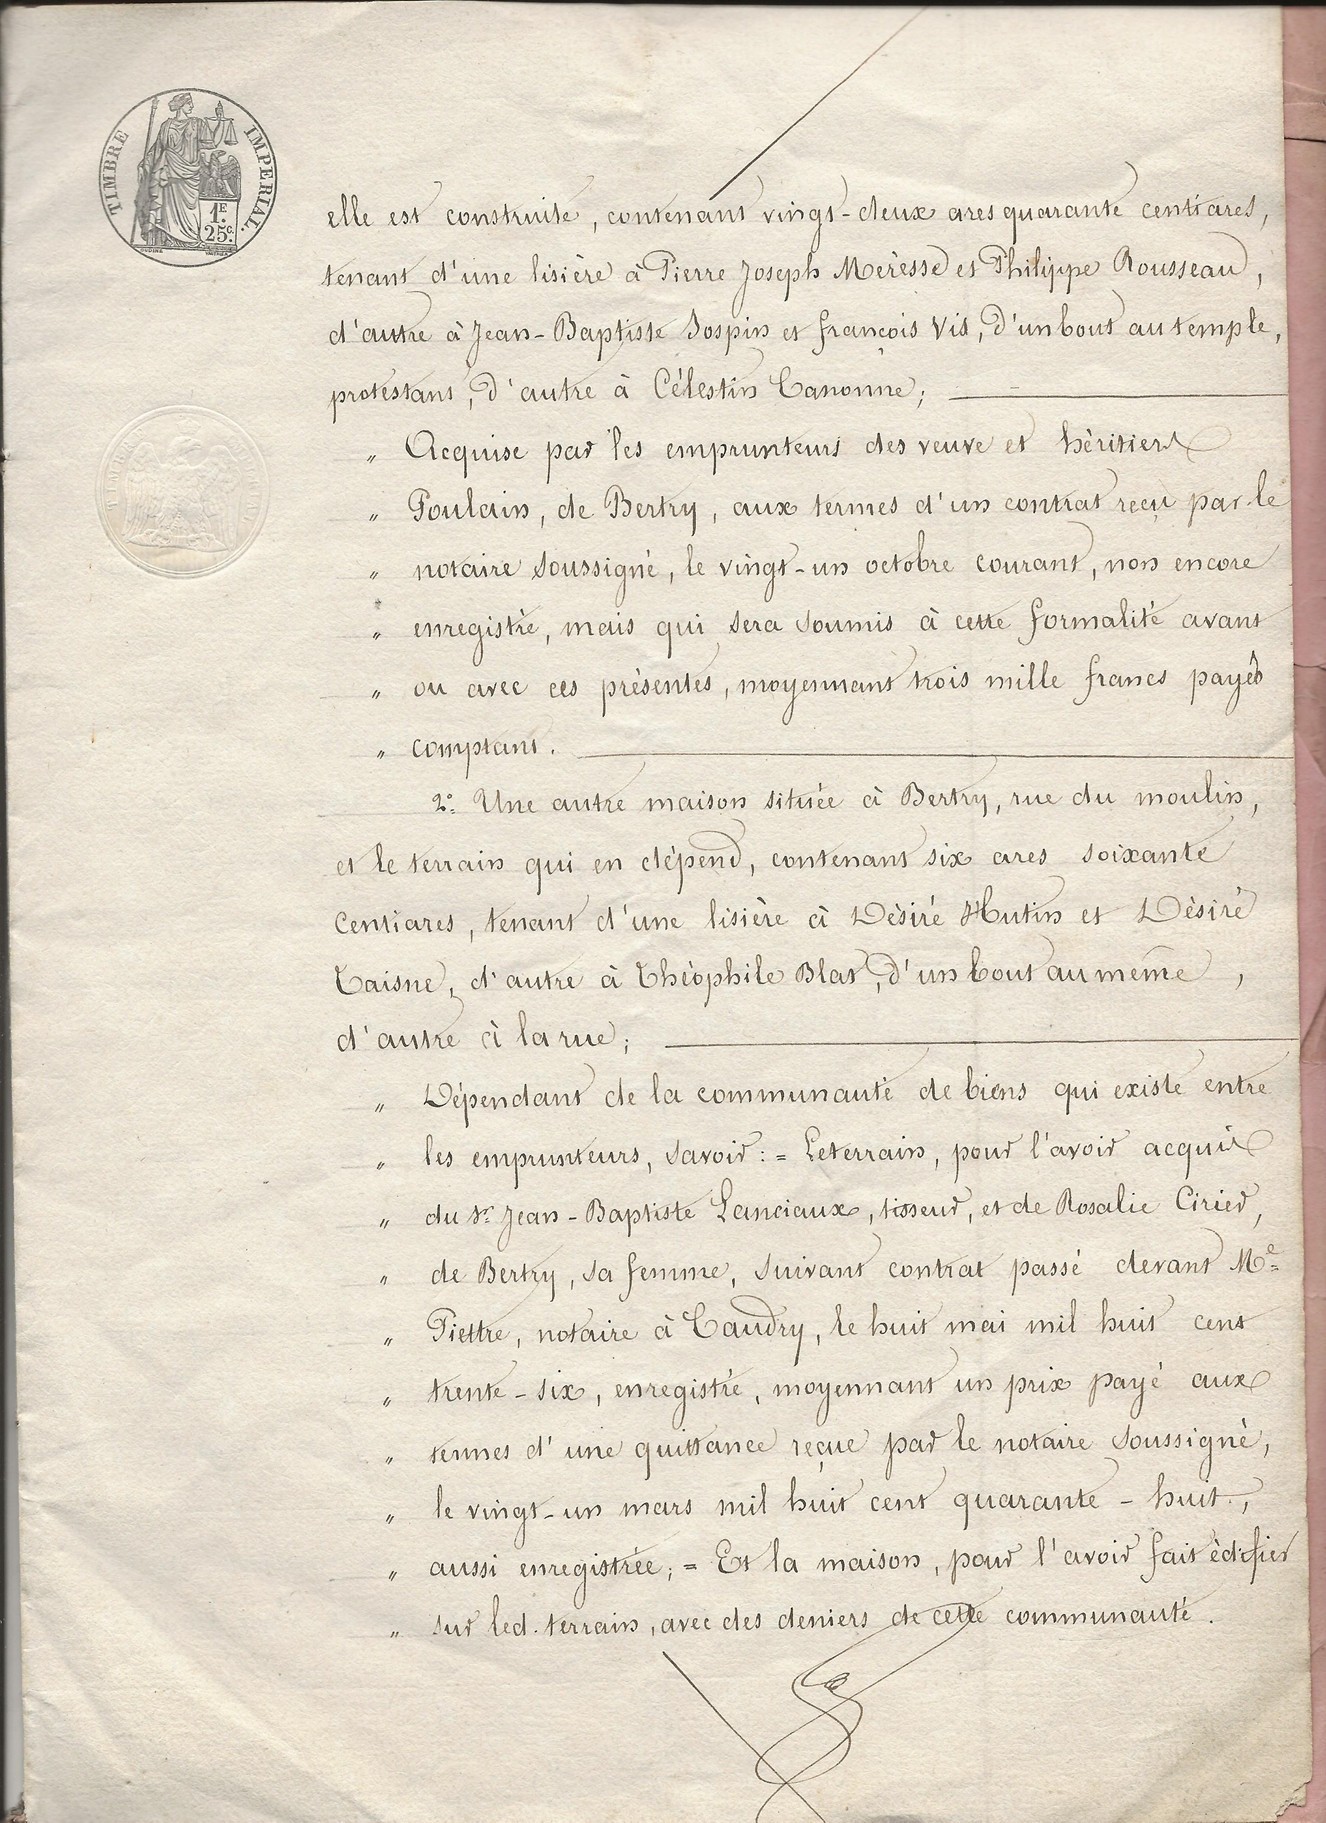 TIMBRE IMPERIAL.
1E
25c.
elle est construite, contenant vingt-deux ares quarante centiares,
tenant d'une lisière à Pierre Joseph Méresse et Philippe Rousseau,
d'autre à Jean-Baptiste Jospin et françois Vis, d'un bout au temple,
protestant, d'autre à Célestin Canonne;
" Acquise par les emprunteurs des veuve et héritiers
" Poulain, de Bertry, aux termes d'un contrat reçu par le
" notaire soussigné, le vingt-un octobre courant, non encore
" enregistré, mais qui sera soumis à cette formalité avant
" ou avec ces présentes, moyennant trois mille francs payés
" comptant.
2° Une autre maison située à Bertry, rue du moulin,
et le terrain qui en dépend, contenant six ares soixante
centiares, tenant d'une lisière à Désiré Hutin et Désiré
Taisne, d'autre à Théophile Blat, d'un bout au même,
d'autre à la rue;
" Dépendant de la communauté de biens qui existe entre
" les emprunteurs, savoir: = Le terrain, pour l'avoir acquis
" du Sr. Jean-Baptiste Lanciaux, tisseur, et de Rosalie Cirier,
" de Bertry, sa femme, suivant contrat passé devant Me
" Piettre, notaire à Caudry, le huit mai mil huit cent
" trente-six, enregistré, moyennant un prix payé aux
" termes d'une quittance reçue par le notaire soussigné,
" le vingt-un mars mil huit cent quarante-huit,
" aussi enregistrée; = Et la maison, pour l'avoir fait édifier
" sur led. terrain, avec des deniers de cette communauté.